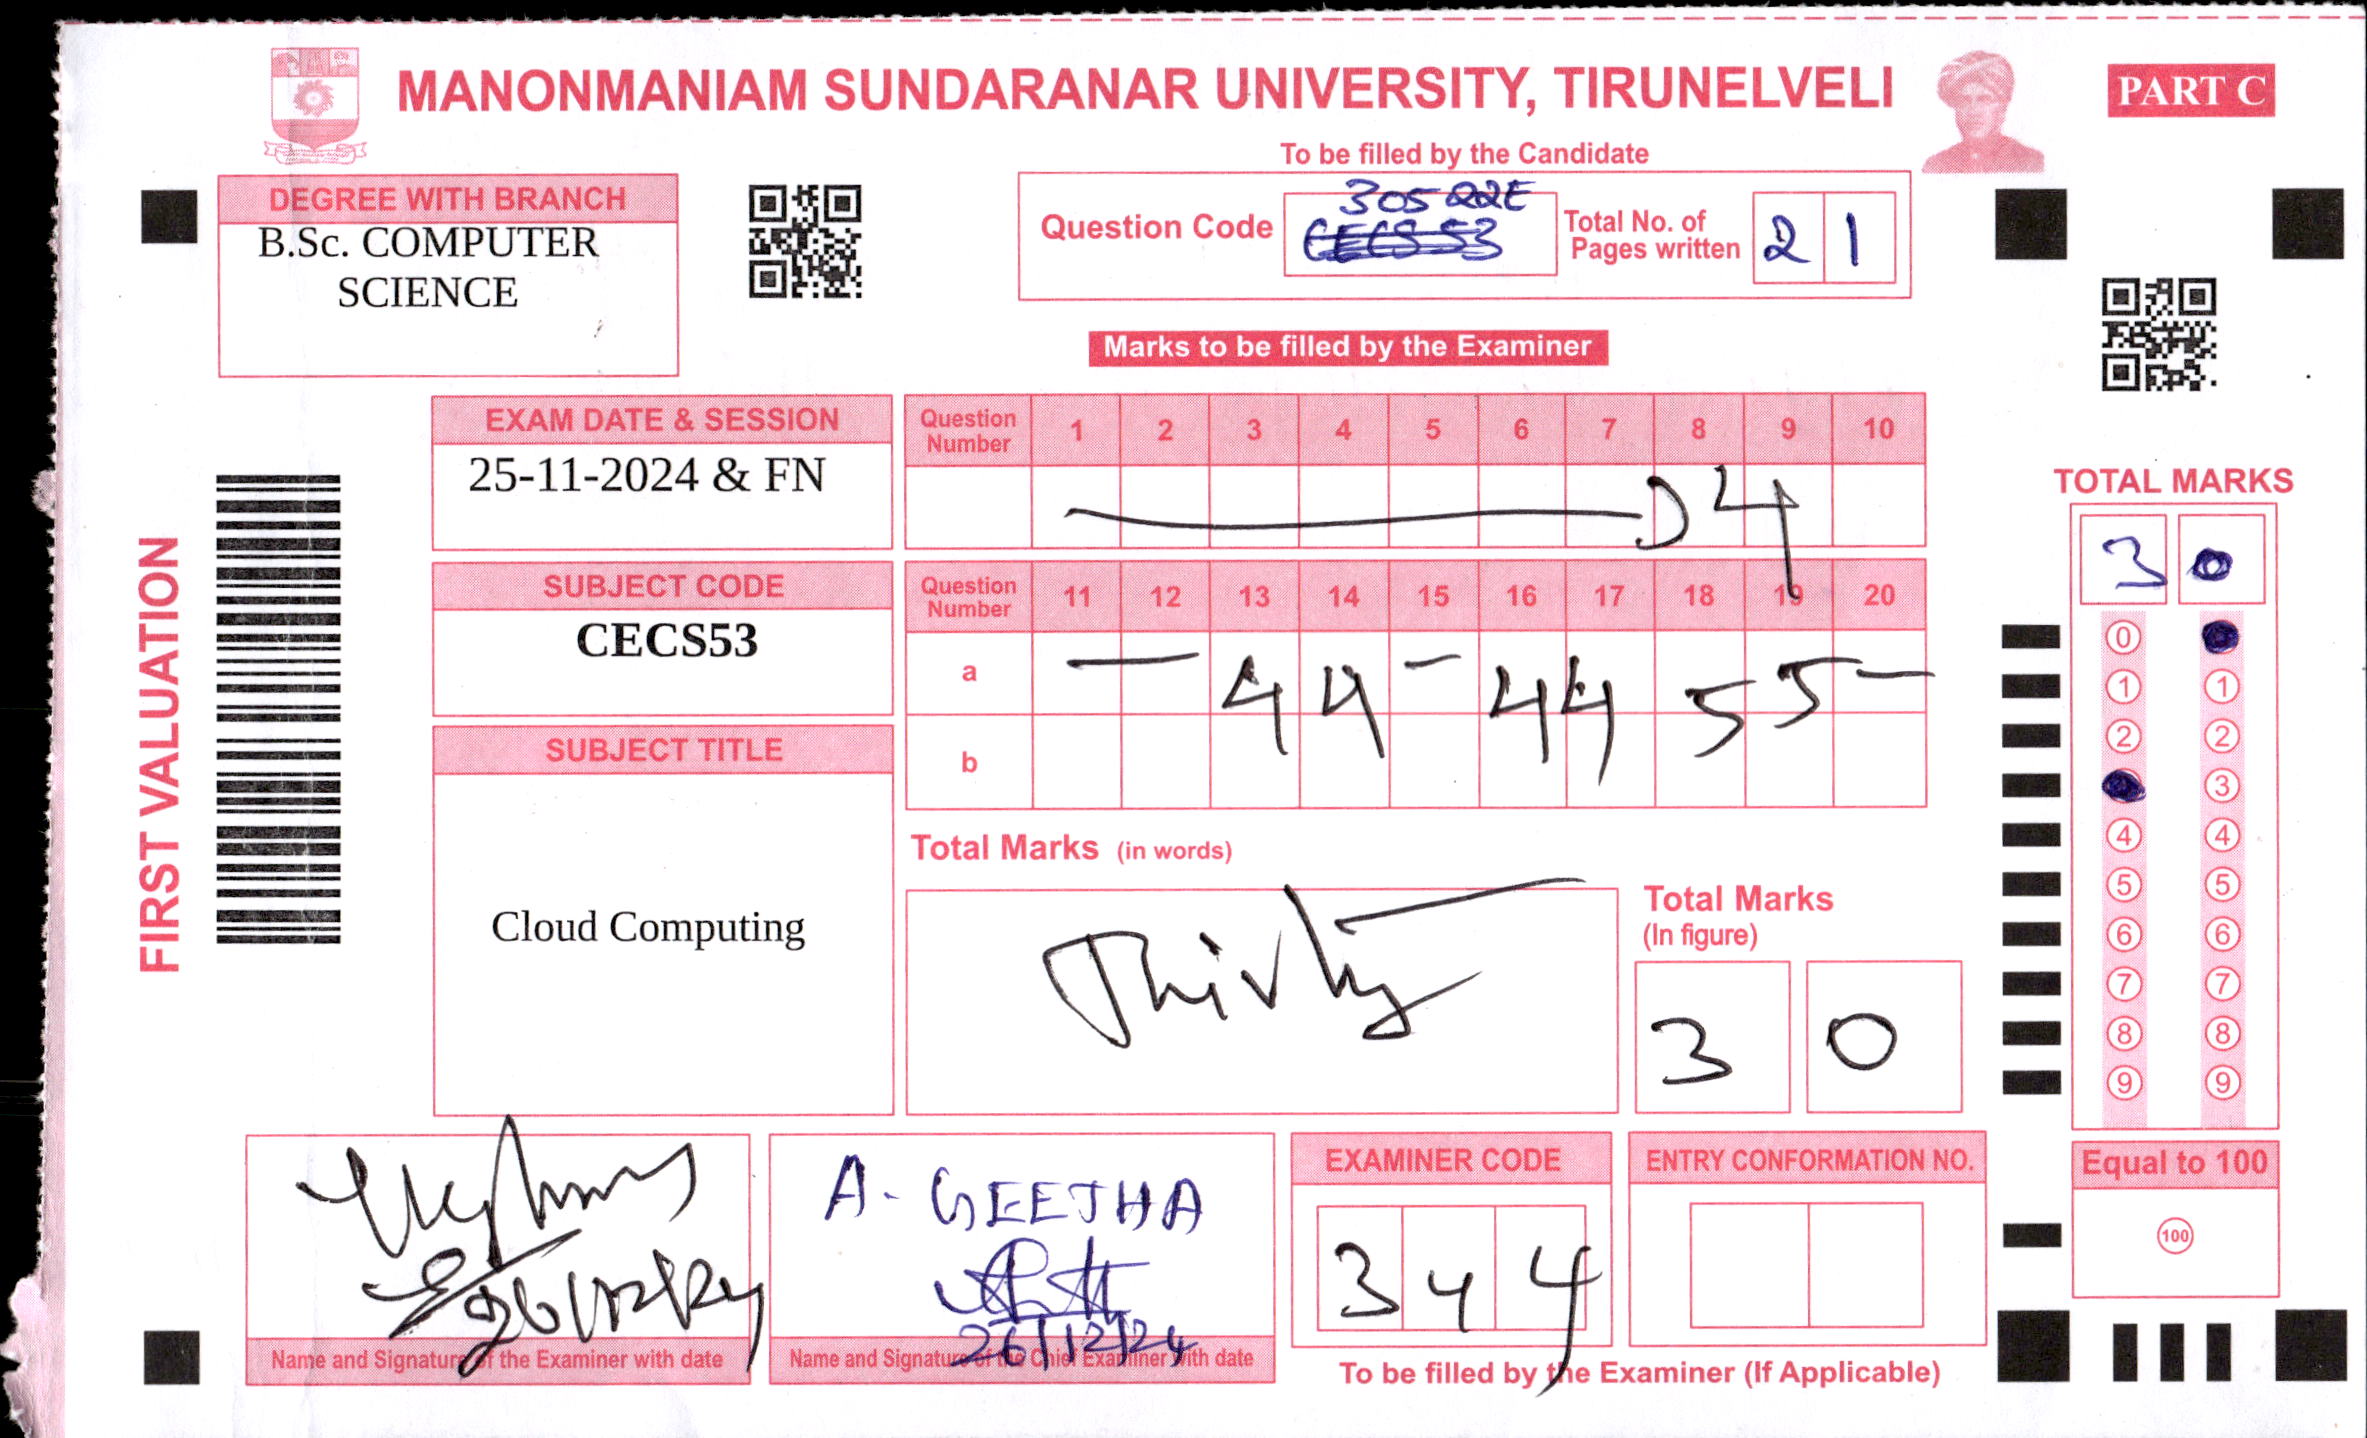 MANONMANIAM SUNDARANAR UNIVERSITY, TIRUNELVELI
PART C
To be filled by the Candidate
DEGREE WITH BRANCH
B.Sc. COMPUTER
SCIENCE
Question Code
30522E
CECS53
Total No. of
Pages written
2 1
Marks to be filled by the Examiner
EXAM DATE & SESSION
25-11-2024 & FN
Question
Number
1 2 3 4 5 6 7 8 9 10
4
SUBJECT CODE
CECS53
Question
Number
11 12 13 14 15 16 17 18 19 20
a
— 4 4 – 4 4 5 5 –
b
SUBJECT TITLE
Cloud Computing
Total Marks (in words)
Thirty
Total Marks
(In figure)
3 0
FIRST VALUATION
TOTAL MARKS
3 0
0
1 1
2 2
3
4 4
5 5
6 6
7 7
8 8
9 9
Equal to 100
100
26/12/24
Name and Signature of the Examiner with date
A. GEETHA
26/12/24
Name and Signature of the Chief Examiner with date
EXAMINER CODE
3 4 4
ENTRY CONFORMATION NO.
To be filled by the Examiner (If Applicable)